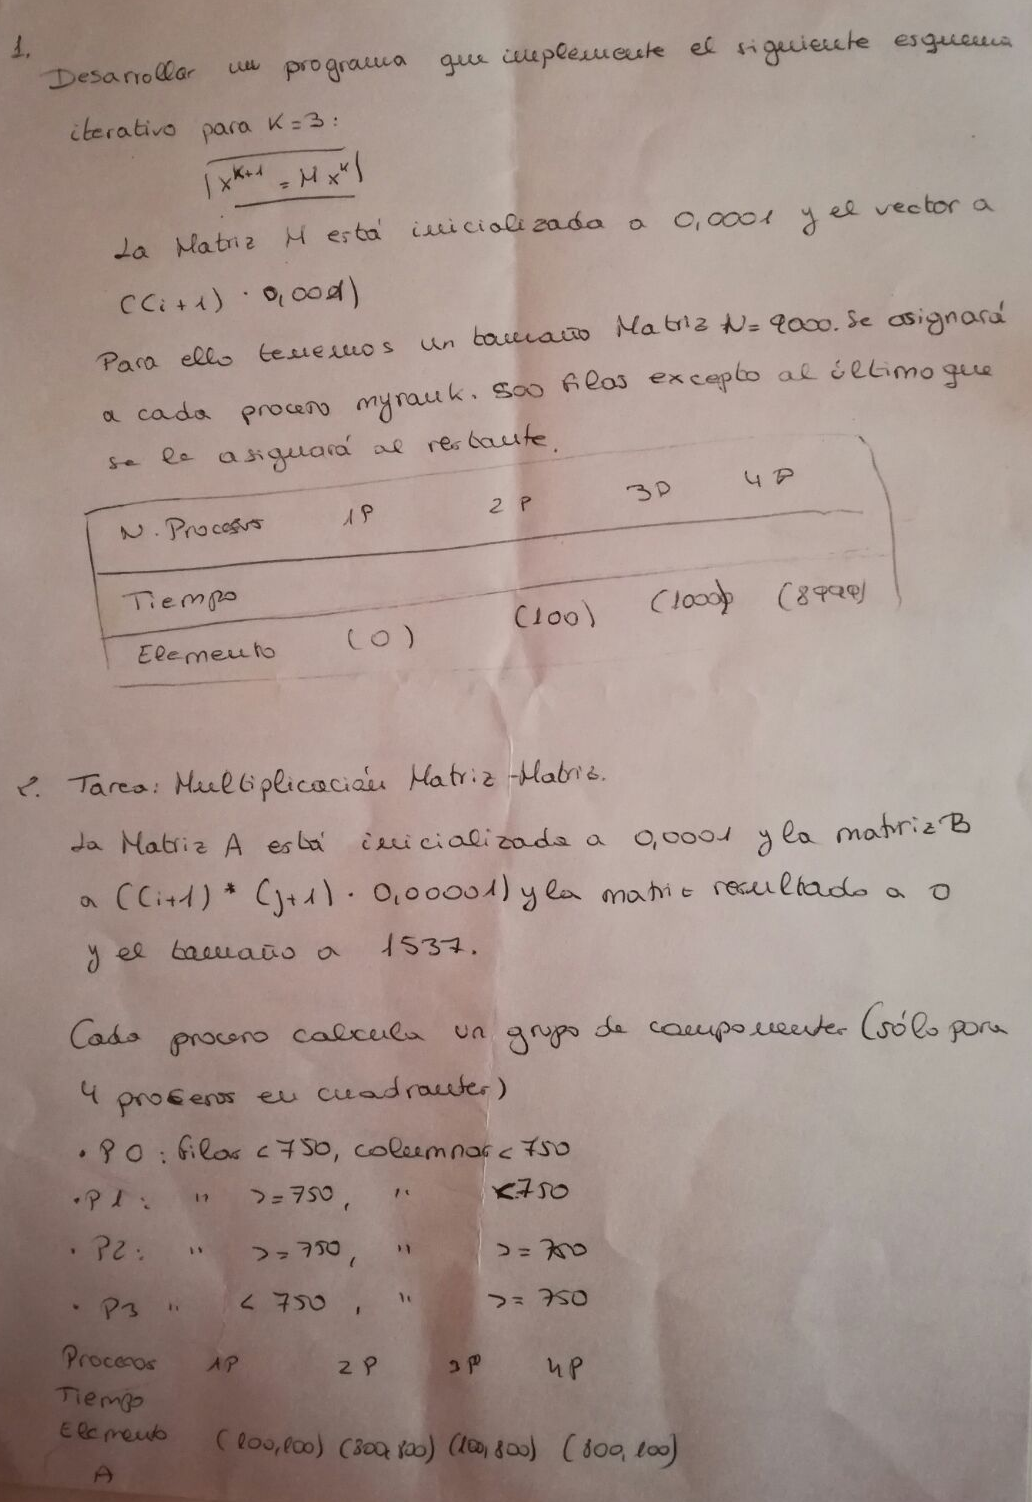 1.
Desarrollar un programa que implemente el siguiente esquema
iterativo para K=3:
|X^K+1 = M X^K|
La Matriz M está inicializada a 0,0001 y el vector a
((i+1) · 0,001)
Para ello tenemos un tamaño Matriz N= 9000. Se asignará
a cada proceso myrank. 500 filas excepto al último que
se le asignará al restante.
N. Procesos 1P 2P 3P 4P
Tiempo
Elemento (0) (100) (1000) (8999)
2. Tarea: Multiplicación Matriz-Matriz.
La Matriz A está inicializada a 0,0001 y la matriz B
a ((i+1) * (j+1) · 0,00001) y la matriz resultado a 0
y el tamaño a 1537.
Cada proceso calcula un grupo de componentes (sólo para
4 procesos en cuadrantes)
· P0: filas < 750, columnas < 750
· P1: " >= 750, " < 750
· P2: " >= 750, " >= 750
· P3 " < 750, " >= 750
Procesos 1P 2P 3P 4P
Tiempo
Elemento (100,100) (800,800) (100,800) (800,100)
A